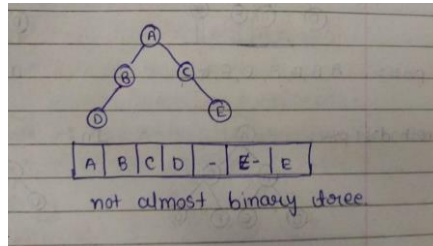 A
B C
D E
A B C D - - E
not almost binary tree